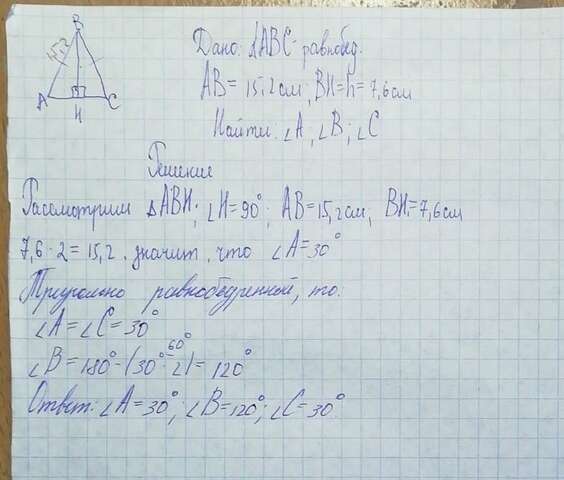 B
15,2
A
H
C
Дано: ΔABC-равнобед.
AB = 15,2 см; BH=h=7,6см
Найти: ∠A; ∠B; ∠C
Решение
Рассмотрим ΔABH; ∠H=90°; AB=15,2см; BH=7,6см
7,6·2=15,2. значит, что ∠A=30°
равнобедренный, то:
∠A=∠C=30°
60°
∠B=180°-(30°·2)=120°
Ответ: ∠A=30°; ∠B=120°; ∠C=30°